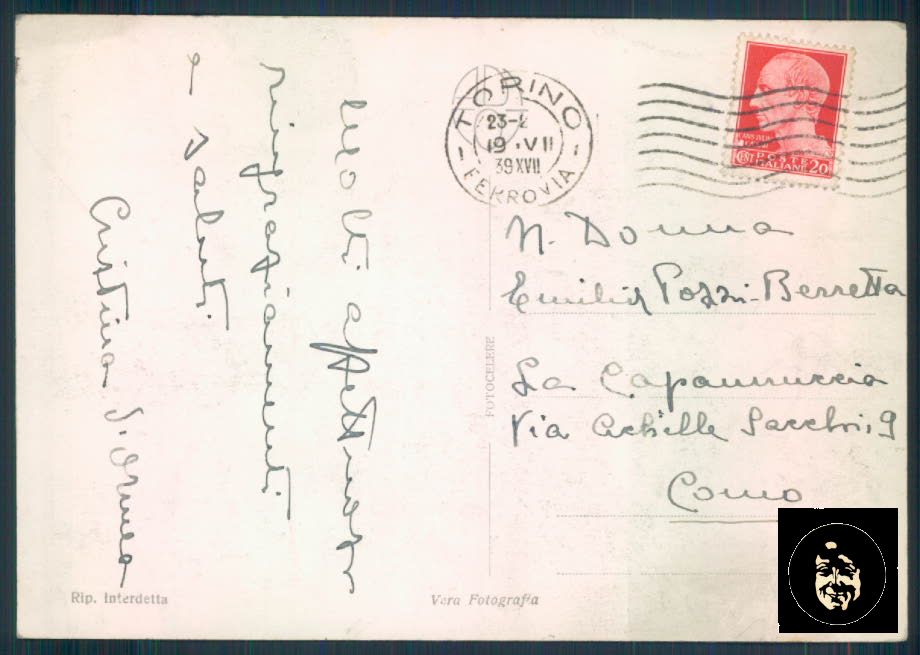 Molti affettuosi
ringraziamenti
e saluti.
Cristina d'Ormea
Rip. Interdetta
Vera Fotografia
FOTOCELERE
TORINO
23-2
19.VII
39XVII
FERROVIA
CENT 20
POSTE
ITALIANE
N. Donna
Emilia Pozzi-Berretta
La Capannuccia
Via Achille Sacchi, 9
Como